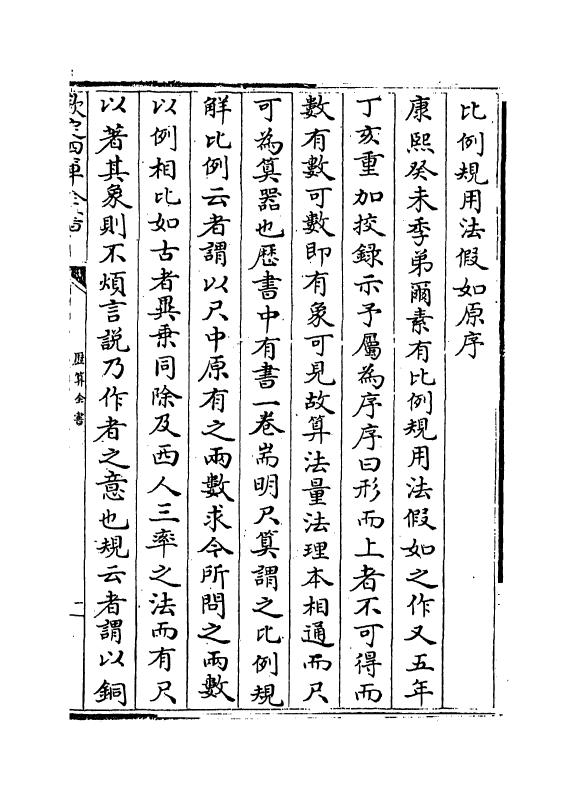 比例規用法假如原序
康熙癸未季弟爾素有比例規用法假如之作又五年
丁亥重加挍録示予屬為序序曰形而上者不可得而
數有數可數即有象可見故算法量法理本相通而尺
可為算器也厯書中有書一卷耑明尺算謂之比例規
解比例云者謂以尺中原有之兩數求今所問之兩數
以例相比如古者異乗同除及西人三率之法而有尺
以著其象則不煩言説乃作者之意也規云者謂以銅
欽定四庫全書
歴算全書
一